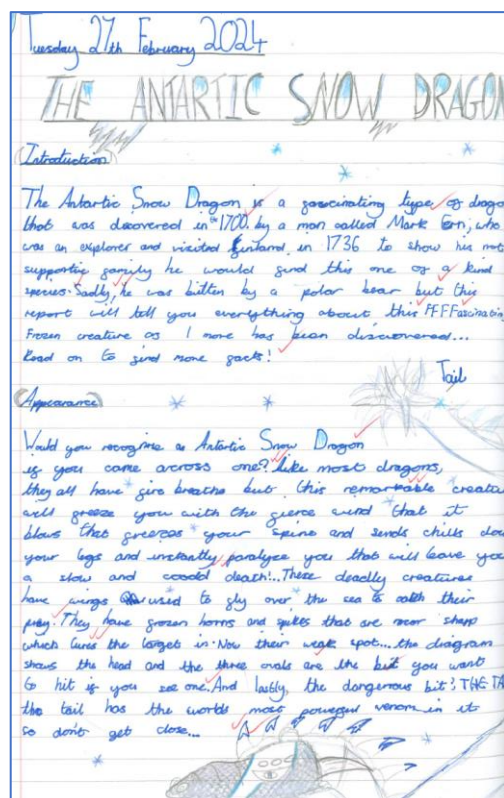 Tuesday 27th February 2024
THE ANTARTIC SNOW DRAGON
Introduction
The Antartic Snow Dragon is a fascinating type of drago
that was discovered in 1700. by a man called Mark Ern, who
was an explorer and visited Finland in 1736 to show his not
supportive family he would find this one of a kind
species. Sadly, he was bitten by a polar bear but this
report will tell you everything about this FFFFascinatin
Frozen creature as 1 more has been discovered...
Read on to find more facts!
Tail
Appearance
Would you recognise an Antartic Snow Dragon
if you came arcross one? Like most dragons,
they all have fire breathe but this remarkable creatu
will freeze you with the fierce wind that it
blows that freezes your spine and sends chills dow
your legs and instantly paralyze you that will leave you
a slow and death!... These deadly creatures
have wings used to fly over the sea to catch their
prey. They have frozen horns and spikes that are sharp
which lures the target in. Now their weak spot... the diagram
shows the head and the three ovals are the bit you want
to hit if you see one. And lastly, the dangerous bit! THE TA
the tail has the worlds most powerful venom in it
so don't get close...